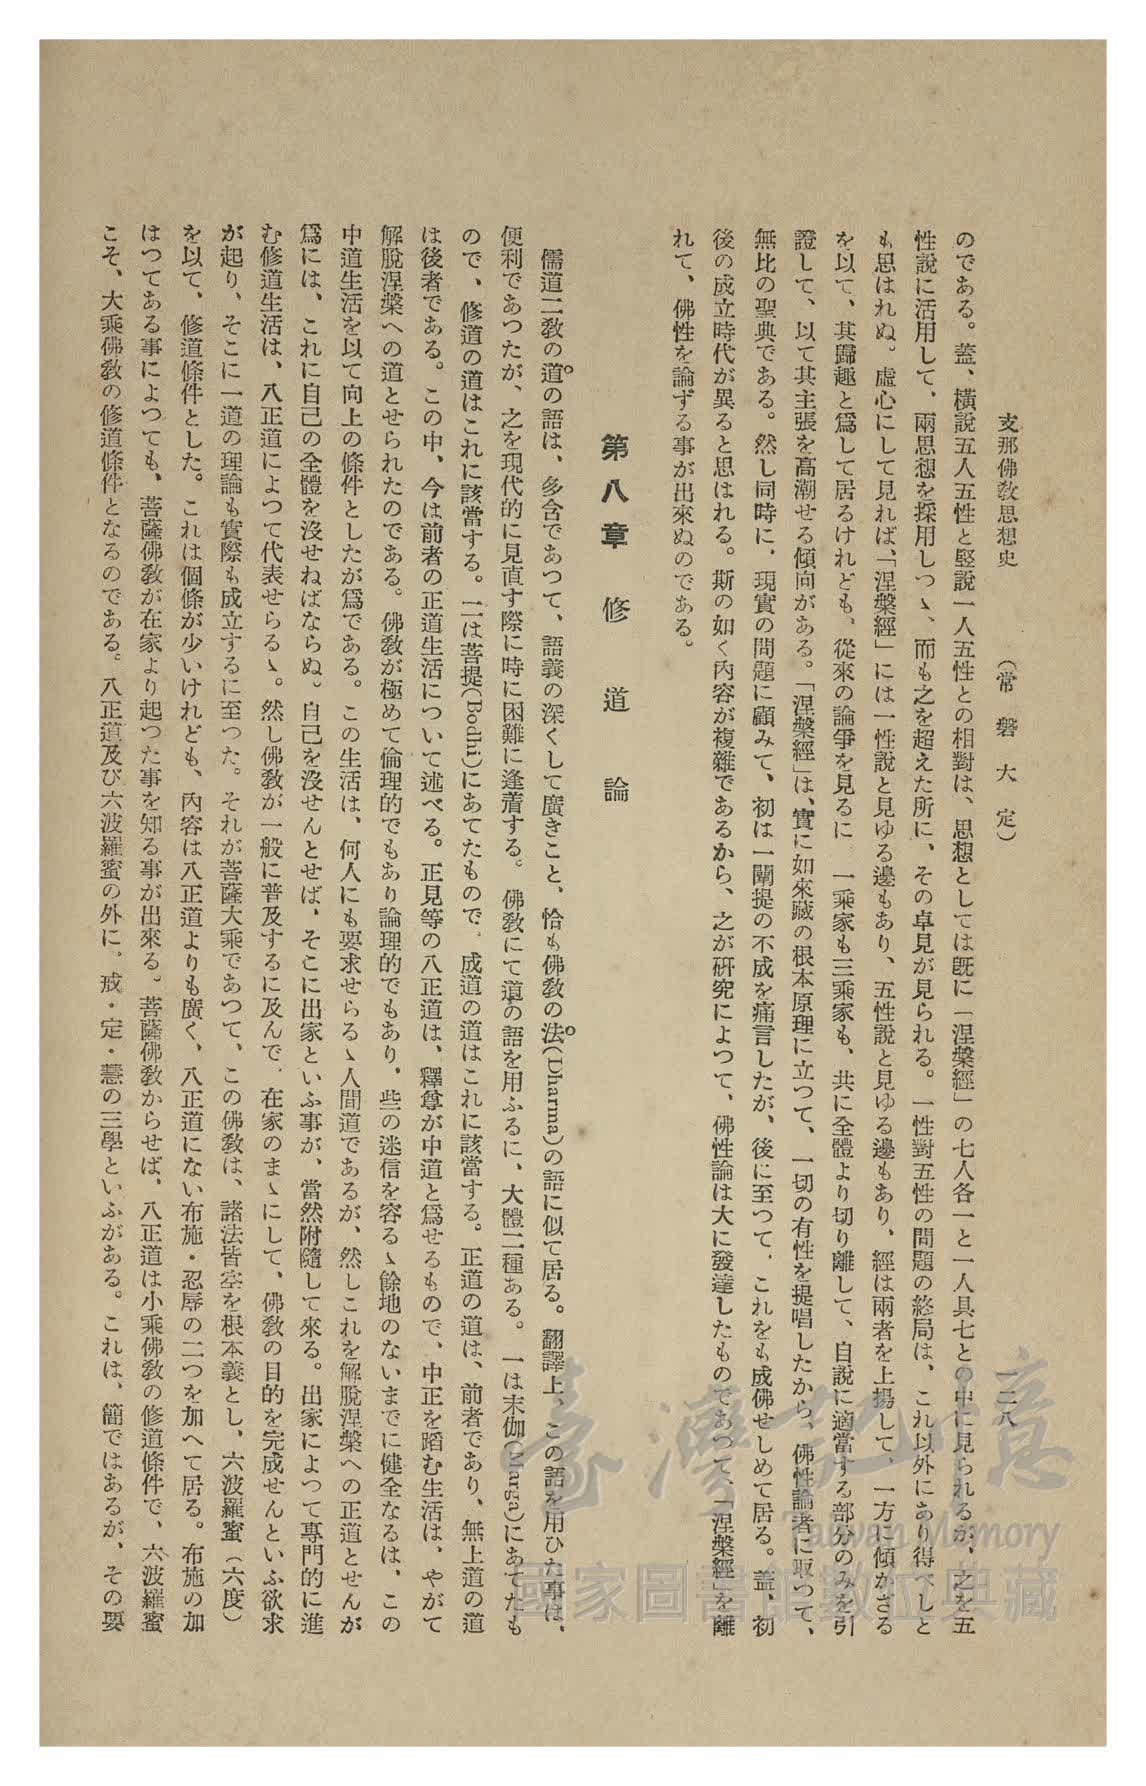 支那佛敎思想史　（常磐大定）　一二八
のである。蓋、橫說五人五性と竪說一人五性との相對は、思想としては旣に「涅槃經」の七人各一と一人具七との中に見られるが、之を五
性說に活用して、兩思想を採用しつゝ、而も之を超えた所に、その卓見が見られる。一性對五性の問題の終局は、これ以外にあり得べしと
も思はれぬ。虛心にして見れば、「涅槃經」には一性說と見ゆる邊もあり、五性說と見ゆる邊もあり、經は兩者を上揚して、一方に傾かざる
を以て、其歸趣と爲して居るけれども、從來の論爭を見るに　一乘家も三乘家も、共に全體より切り離して、自說に適當する部分のみを引
證して、以て其主張を高潮せる傾向がある。「涅槃經」は、實に如來藏の根本原理に立つて、一切の有性を提唱したから、佛性論者に取つて、
無比の聖典である。然し同時に、現實の問題に顧みて、初は一闡提の不成を痛言したが、後に至つて、これをも成佛せしめて居る。蓋、初
後の成立時代が異ると思はれる。斯の如く內容が複雜であるから、之が硏究によつて、佛性論は大に發達したものであつて、「涅槃經」を離
れて、佛性を論ずる事が出來ぬのである。
第八章　修道論
儒道二敎の道の語は、多含であつて、語義の深くして廣きこと、恰も佛敎の法(Dharma)の語に似て居る。翻譯上、この語を用ひた事は、
便利であつたが、之を現代的に見直す際に時に困難に逢着する。佛敎にて道の語を用ふるに、大體二種ある。一は末伽(Marga)にあてたも
ので、修道の道はこれに該當する。二は菩提(Bodhi)にあてたもので、成道の道はこれに該當する。正道の道は、前者であり、無上道の道
は後者である。この中、今は前者の正道生活について述べる。正見等の八正道は、釋尊が中道と爲せるもので、中正を蹈む生活は、やがて
解脫涅槃への道とせられたのである。佛敎が極めて倫理的でもあり論理的でもあり、些の迷信を容るゝ餘地のないまでに健全なるは、この
中道生活を以て向上の條件としたが爲である。この生活は、何人にも要求せらるゝ人間道であるが、然しこれを解脫涅槃への正道とせんが
爲には、これに自己の全體を沒せねばならぬ。自己を沒せんとせば、そこに出家といふ事が、當然附隨して來る。出家によつて專門的に進
む修道生活は、八正道によつて代表せらるゝ。然し佛敎が一般に普及するに及んで、在家のまゝにして、佛敎の目的を完成せんといふ欲求
が起り、そこに一道の理論も實際も成立するに至つた。それが菩薩大乘であつて、この佛敎は、諸法皆空を根本義とし、六波羅蜜（六度）
を以て、修道條件とした。これは個條が少いけれども、內容は八正道よりも廣く、八正道にない布施・忍辱の二つを加へて居る。布施の加
はつてある事によつても、菩薩佛敎が在家より起つた事を知る事が出來る。菩薩佛敎からせば、八正道は小乘佛敎の修道條件で、六波羅蜜
こそ、大乘佛敎の修道條件となるのである。八正道及び六波羅蜜の外に、戒・定・慧の三學といふがある。これは、簡ではあるが、その要
臺灣記憶
Taiwan Memory
國家圖書館數位典藏